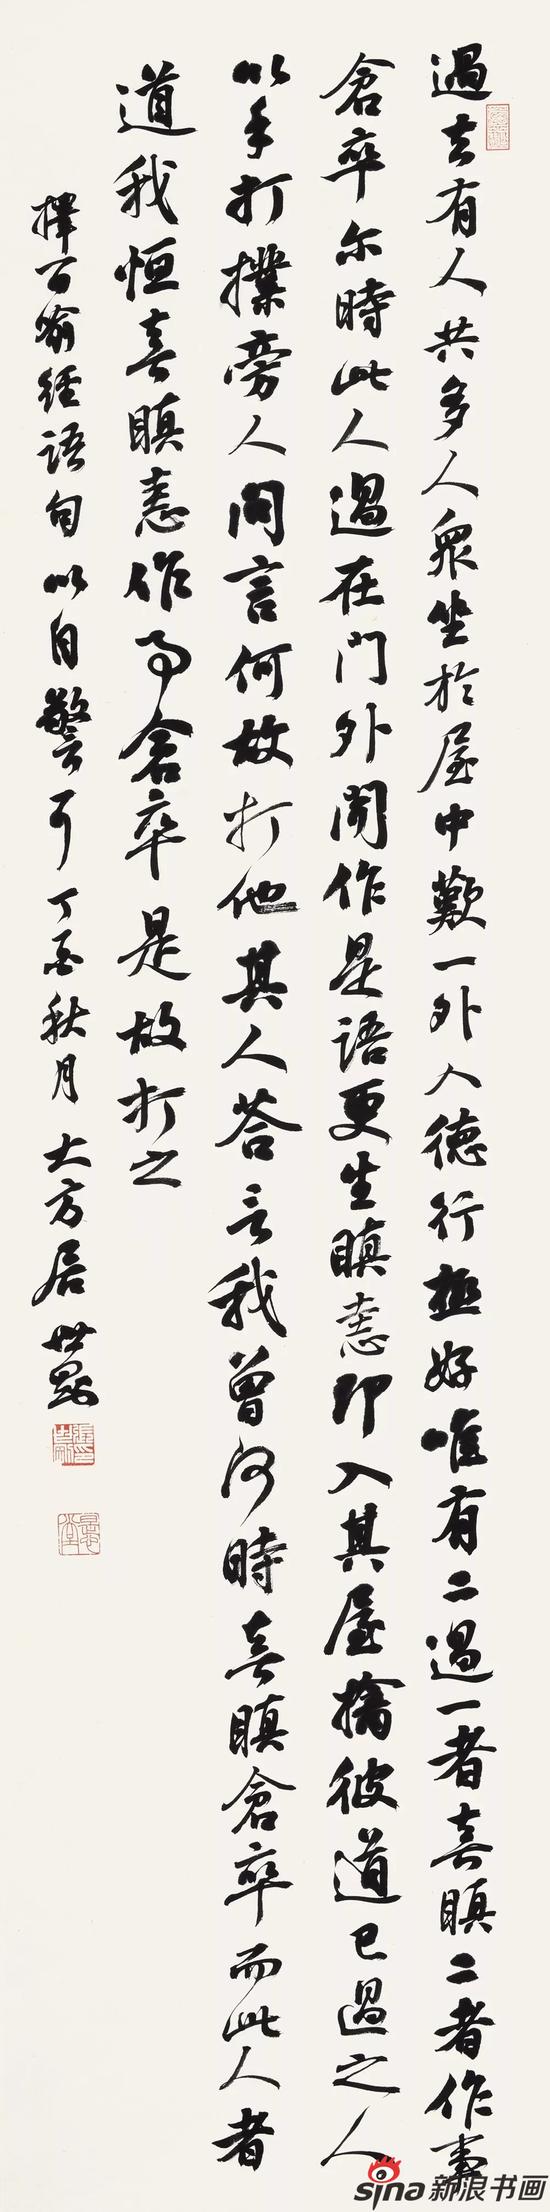 過去有人共多人眾坐於屋中歎一外人德行極好唯有二過一者喜瞋二者作事
倉卒尔時此人過在門外聞作是語更生瞋恚即入其屋擒彼道己過之人
以手打撲旁人問言何故打他其人荅言我曾何時喜瞋倉卒而此人者
道我恒喜瞋恚作事倉卒是故打之
擇百喻經語句以自警耳丁酉秋月大方居世剛
sina新浪书画